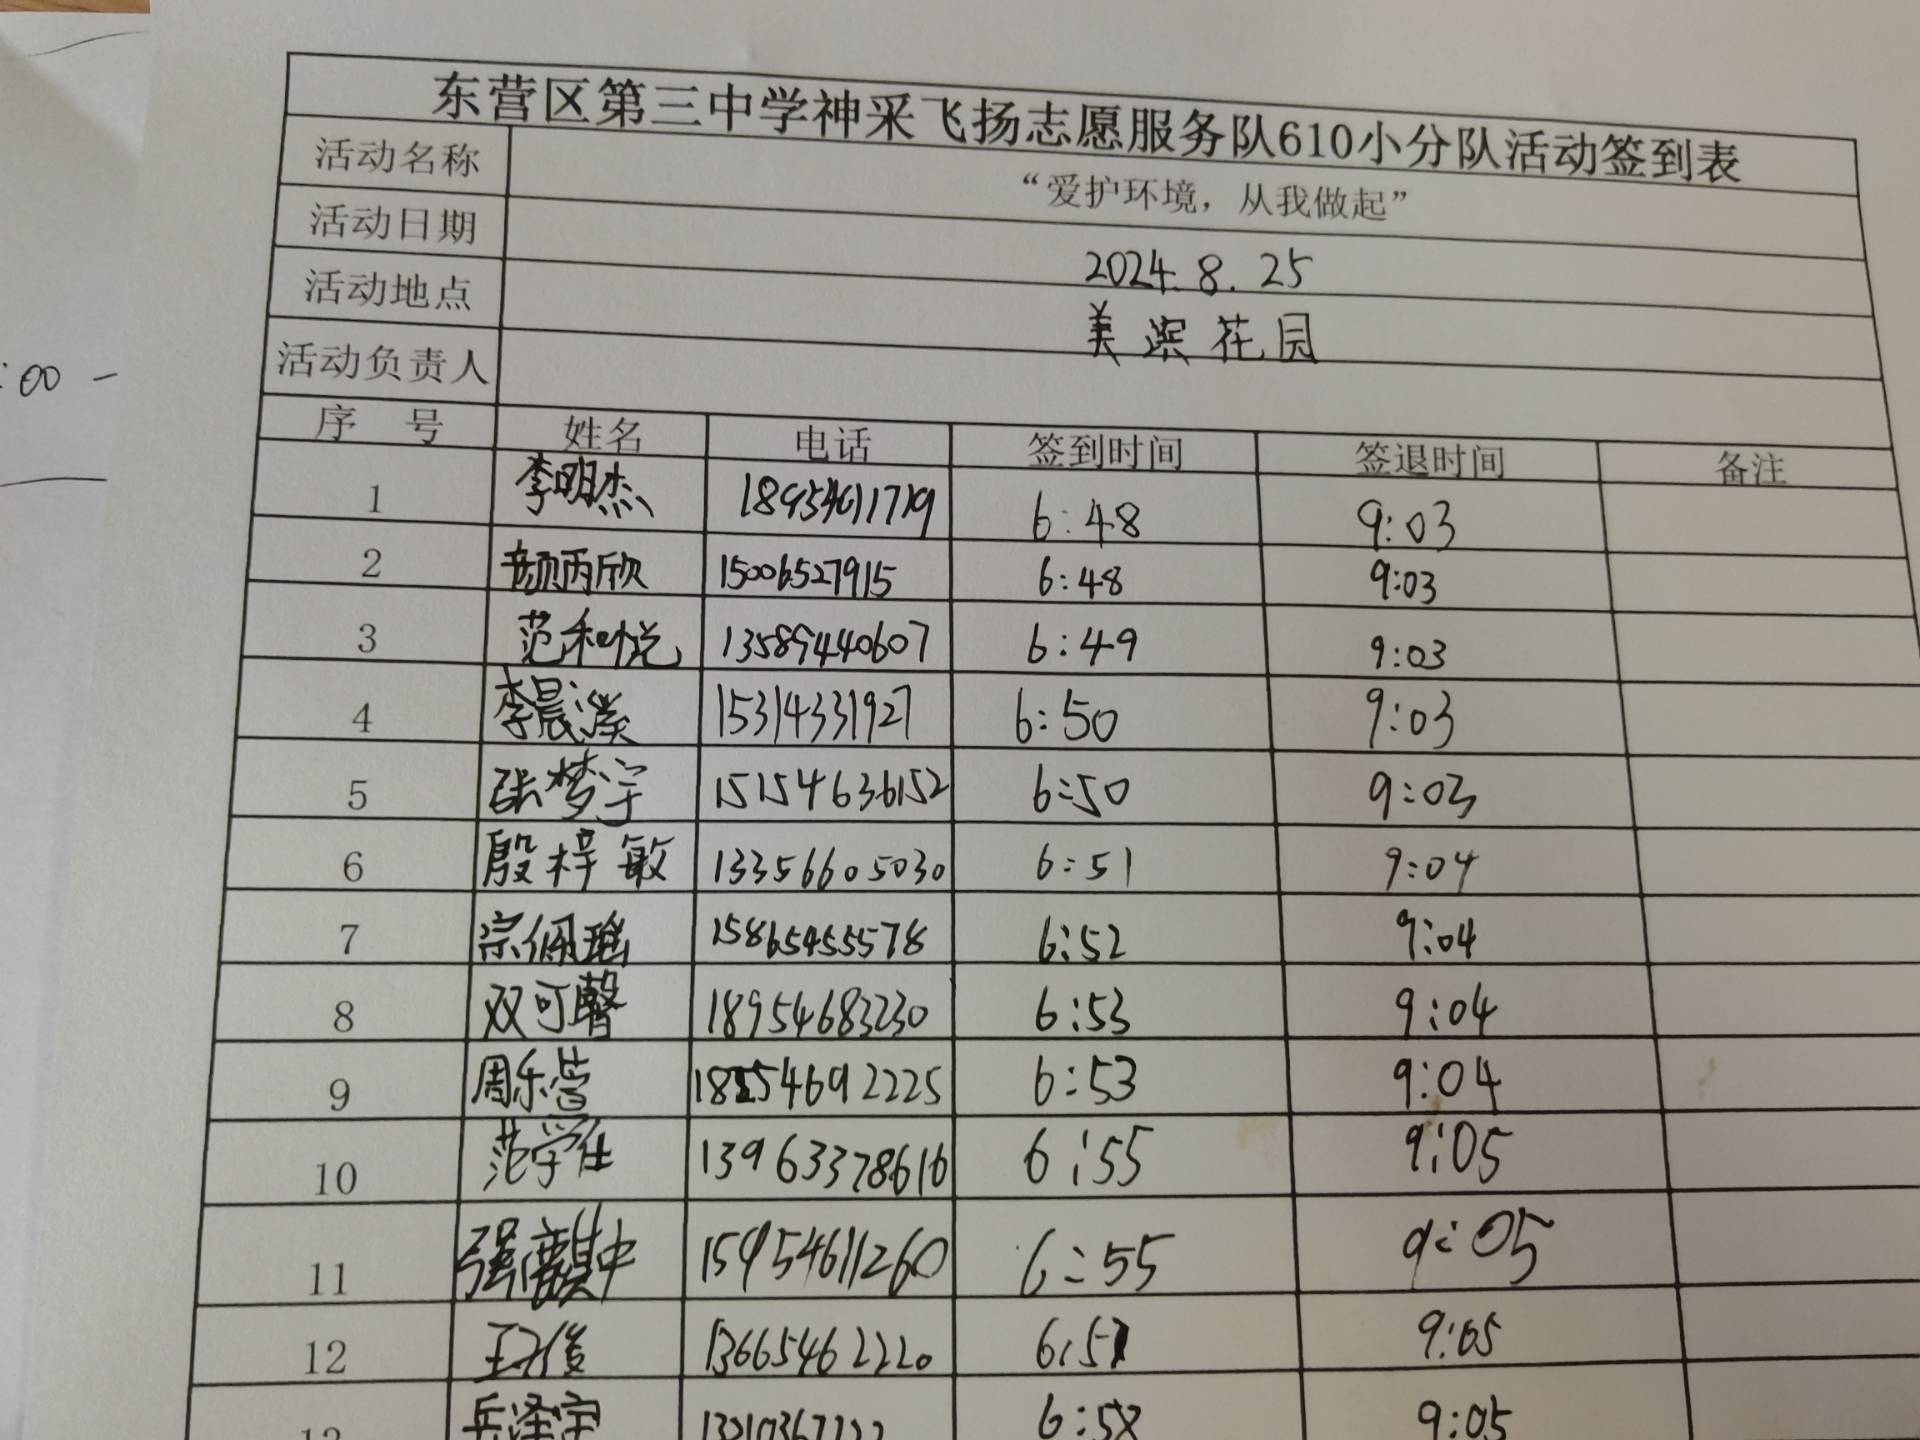 :00 -
东营区第三中学神采飞扬志愿服务队610小分队活动签到表
活动名称 “爱护环境，从我做起”
活动日期 2024.8.25
活动地点 美滨花园
活动负责人
序号 姓名 电话 签到时间 签退时间 备注
1 李明杰 18954611719 6:48 9:03
2 颜丙欣 15006527915 6:48 9:03
3 范和悦 13589440607 6:49 9:03
4 李晨溪 15314331927 6:50 9:03
5 张梦宇 15154636152 6:50 9:03
6 殷梓敏 13356605030 6:51 9:04
7 宗佩瑶 15865455578 6:52 9:04
8 双可馨 18954683230 6:53 9:04
9 周乐萱 18254692225 6:53 9:04
10 范学仕 13963378616 6:55 9:05
11 15954611260 6:55 9:05
12 王子俊 13665462220 6:57 9:05
13 岳泽宇 6:58 9:05